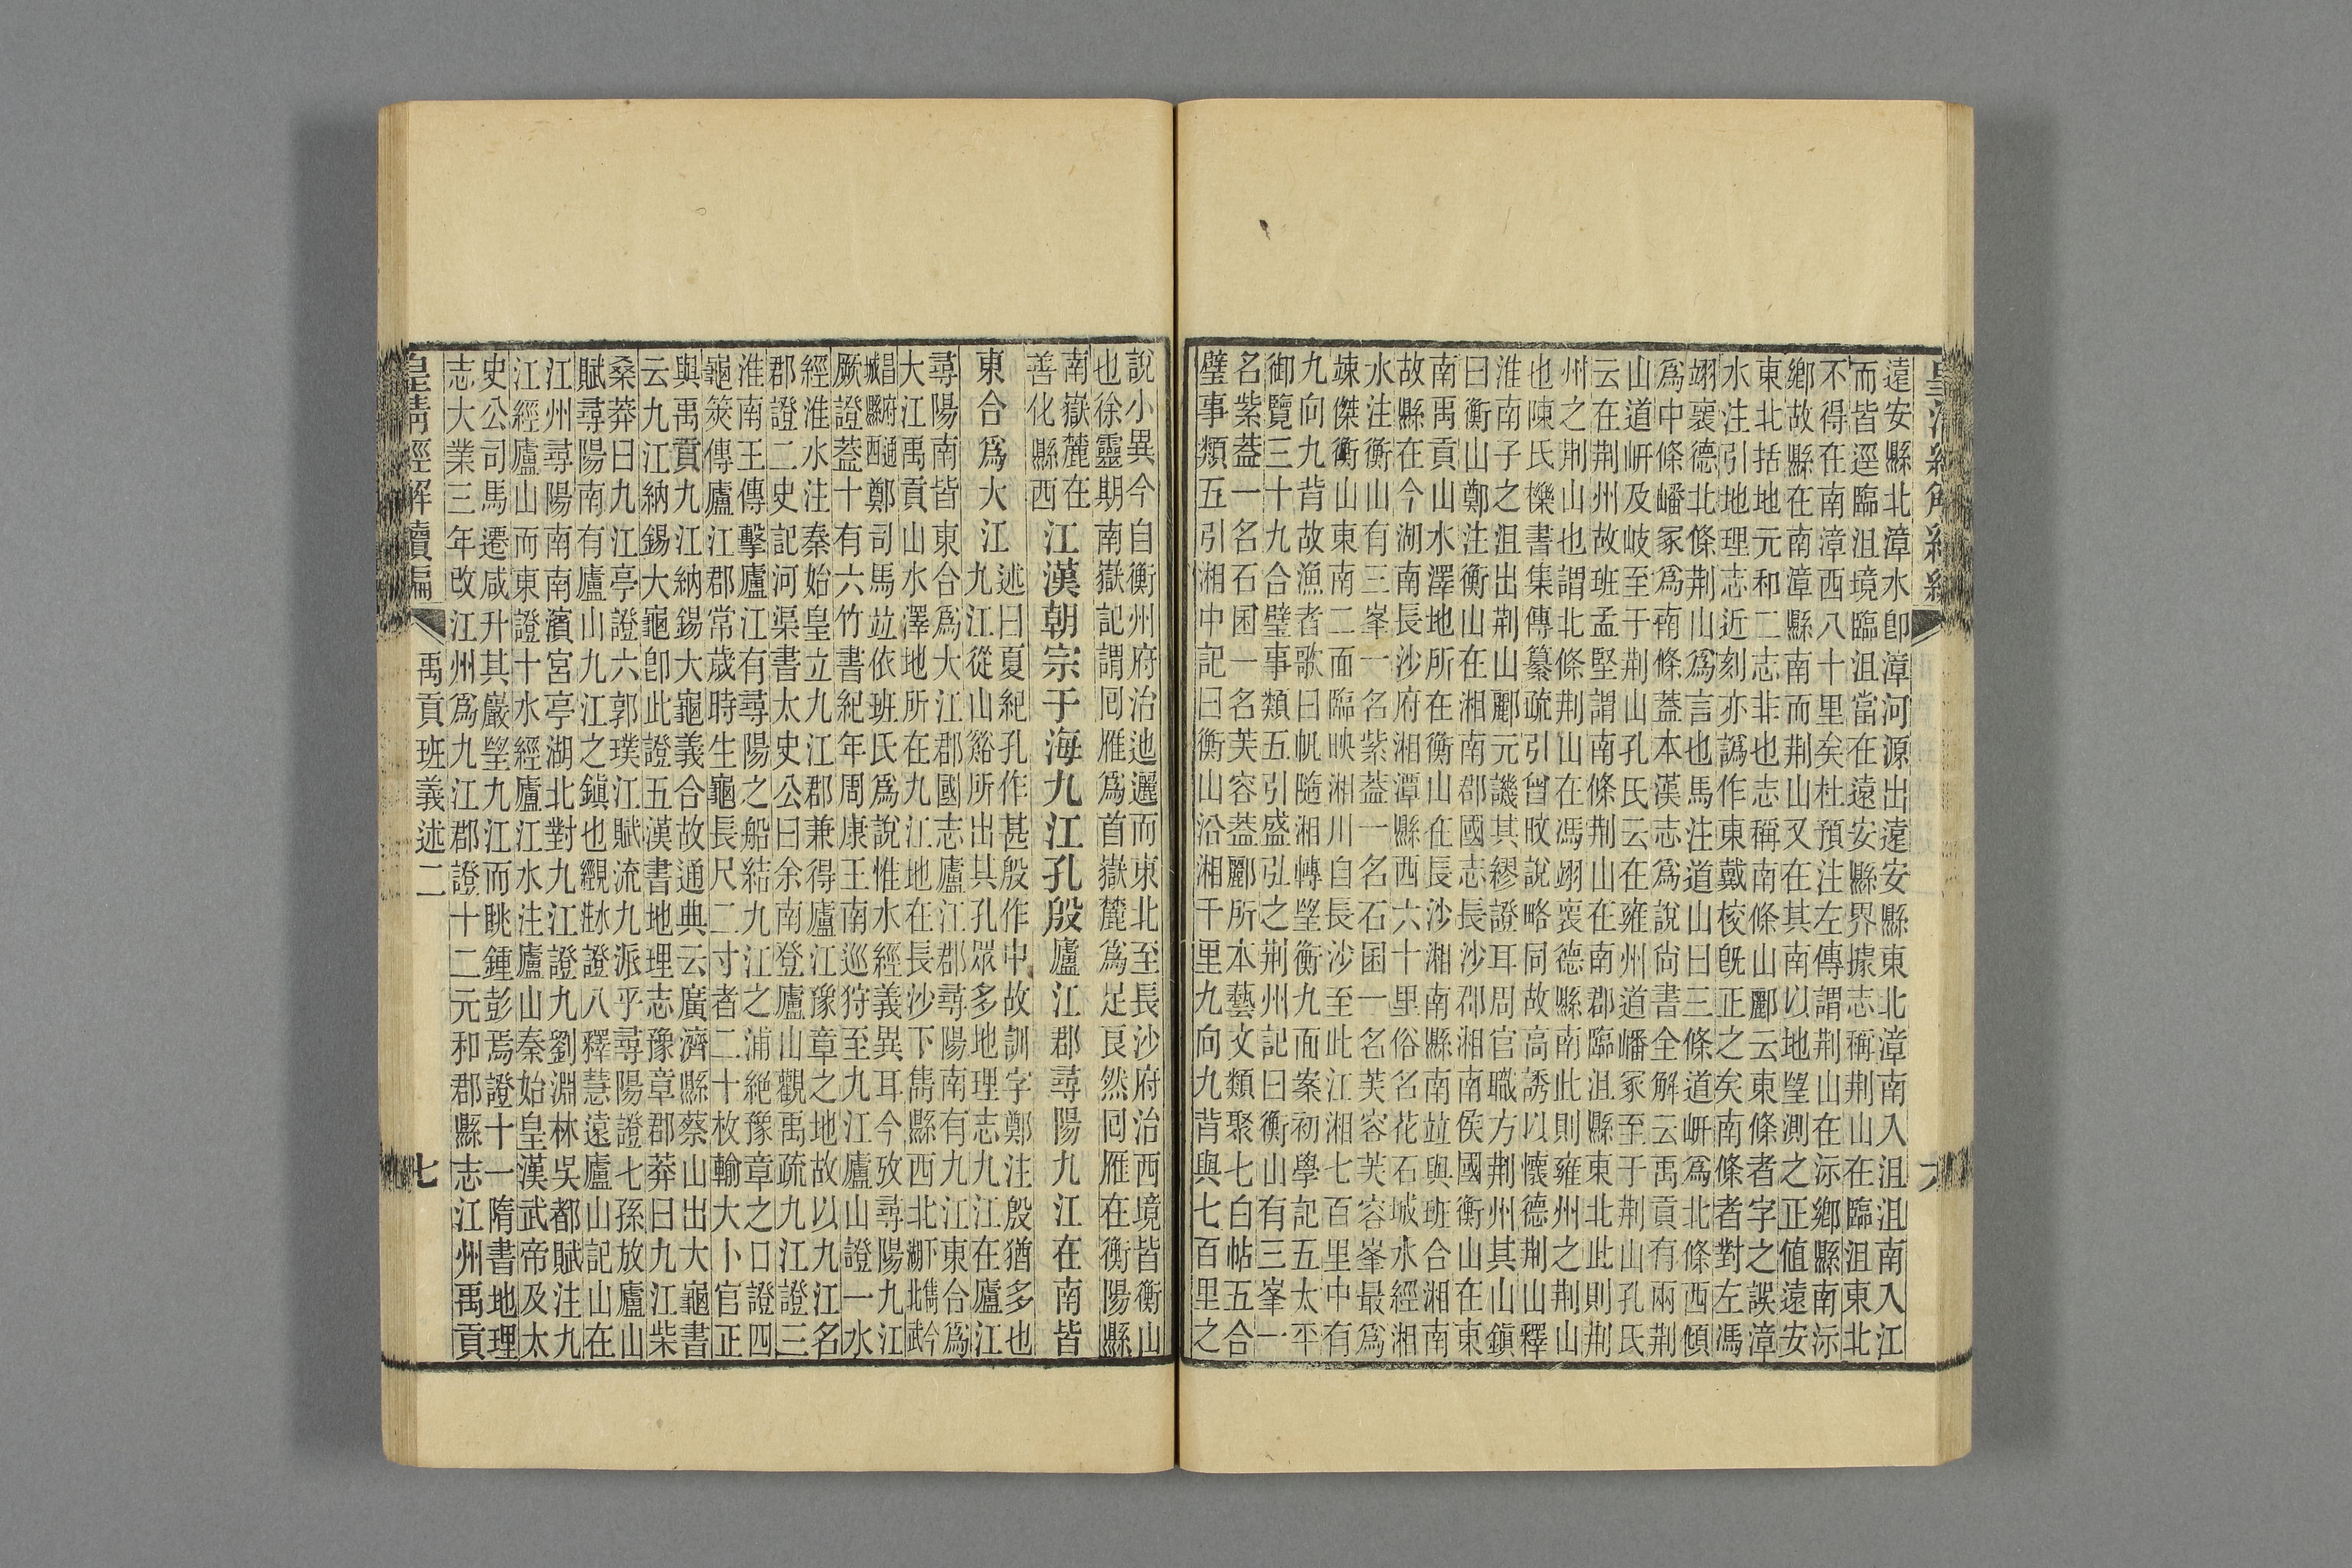 皇清經解續編
遠安縣北漳水卽漳河源出遠安縣東北漳南入沮南入江
而皆逕臨沮境臨沮當在遠安縣界據志稱荆山在臨沮東北
不得在南漳西八十里矣杜預注左傳謂荆山在沶鄉縣南沶
鄉故縣在南漳縣南而荆山又在其南以地望測之正值遠安
東北括地元和二志非也志稱南條山酈云東條者字之誤漳
水注引地理志近刻亦譌作東戴校旣正之矣南條者對左馮
翊褱德北條荆山爲言也馬注道山曰三條道岍爲北條西傾
爲中條嶓冢爲南條蓋本漢志爲說尙書全解云禹貢有兩荆
山道岍及岐至于荆山孔氏云在雍州道嶓冢至于荆山孔氏
云在荆州故班孟堅謂南條荆山在南郡臨沮縣東北此則荆
州之荆山也謂北條荆山在馮翊褱德縣南此則雍州之荆山
也陳氏櫟書集傳纂疏引曾旼說略同故高誘以懷德荆山釋
淮南子之沮出荆山酈元譏其繆證耳周官職方荆州其山鎭
曰衡山鄭注衡山在湘南郡國志長沙郡湘南侯國衡山在東
南禹貢山水澤地所在衡山在長沙湘南縣南竝與班合湘南
故縣在今湖南長沙府湘潭縣西六十里俗名花石城水經湘
水注衡山有三峯一名紫蓋一名石囷一名芙容芙容峯最爲
竦傑衡山東南二面臨映湘川自長沙至此江湘七百里中有
九向九背故漁者歌曰帆隨湘轉望衡九面案初學記五太平
御覽三十九合璧事類五引盛弘之荆州記曰衡山有三峯一
名紫蓋一名石囷一名芙容蓋酈所本藝文類聚七白帖五合
璧事類五引湘中記曰衡山沿湘千里九向九背與七百里之
說小異今自衡州府治迆邐而東北至長沙府治西境皆衡山
也徐靈期南嶽記謂回雁爲首嶽麓爲足良然回雁在衡陽縣
南嶽麓在
善化縣西
江漢朝宗于海九江孔殷廬江郡尋陽九江在南皆
東合爲大江
述曰夏紀孔作甚殷作中故訓字鄭注殷猶多也
九江從山谿所出其孔眾多地理志九江在廬江
尋陽南皆東合爲大江郡國志廬江郡尋陽南有九江東合爲
大江禹貢山水澤地所在九江地在長沙下雋縣西北下雋今湖北武
昌府通城縣西鄭司馬竝依班氏爲說惟水經義異耳今攷尋陽九江
厥證蓋十有六竹書紀年周康王南巡狩至九江廬山證一水
經淮水注秦始皇立九江郡兼得廬江豫章之地故以九江名
郡證二史記河渠書太史公曰余南登廬山觀禹疏九江證三
淮南王傳擊廬江有尋陽之船結九江之浦絶豫章之口證四
龜筴傳廬江郡常歲時生龜長尺二寸者二十枚輸大卜官正
與禹貢九江納錫大龜義合故通典云廣濟縣蔡山出大龜書
云九江納錫大龜卽此證五漢書地理志豫章郡莽曰九江柴
桑莽曰九江亭證六郭璞江賦流九派乎尋陽證七孫放廬山
賦尋陽南有廬山九江之鎭也證八釋慧遠廬山記山在
江州尋陽南南濱宮亭湖北對九江證九劉淵林吳都賦注九
江經廬山而東證十水經廬江水注廬山秦始皇漢武帝及太
史公司馬遷咸升其巖望九江而眺鍾彭焉證十一隋書地理
志大業三年改江州爲九江郡證十二元和郡縣志江州禹貢
皇清經解續編 禹貢班義述二 七